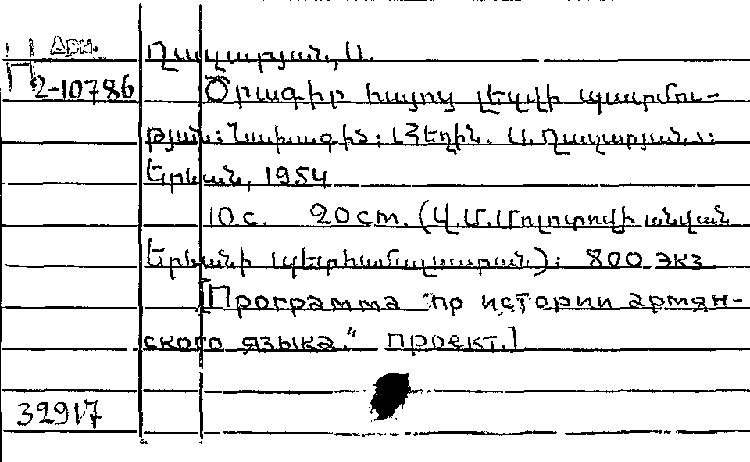 Арм.
П
2-10786
Ղազարյան, Ա.
Ծրագիր հայոց լեզվի պատմու-
թյան: Նախագիծ: [Հեղին. Ա. Ղազարյան]:
Երևան, 1954
10 с. 20 cm. (Վ. Մ. Մոլոտովի անվան
Երևանի պետհամալսարան): 800 экз
[Программа "по истории армян-
ского языка." Проект.]
32917